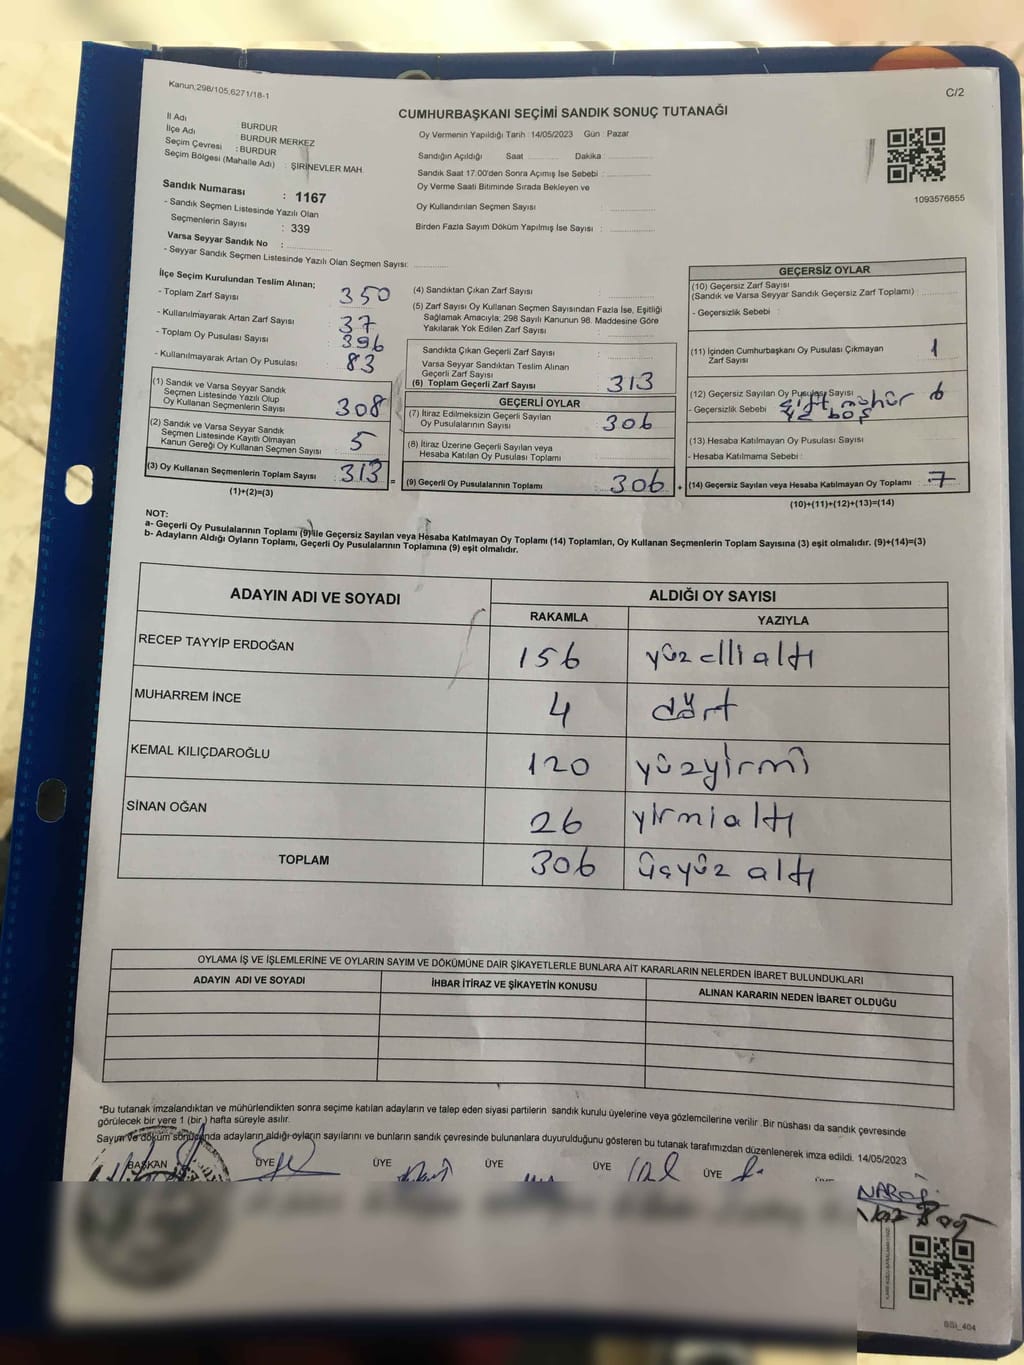 Kanun,298/105,6271/18-1
C/2
CUMHURBAŞKANI SEÇİMİ SANDIK SONUÇ TUTANAĞI
İl Adı BURDUR
İlçe Adı BURDUR MERKEZ
Seçim Çevresi : BURDUR
Seçim Bölgesi (Mahalle Adı) : ŞİRİNEVLER MAH
Sandık Numarası : 1167
- Sandık Seçmen Listesinde Yazılı Olan
Seçmenlerin Sayısı : 339
Varsa Seyyar Sandık No :
- Seyyar Sandık Seçmen Listesinde Yazılı Olan Seçmen Sayısı:
Oy Vermenin Yapıldığı Tarih : 14/05/2023 Gün : Pazar
Sandığın Açıldığı Saat Dakika :
Sandık Saat 17:00'den Sonra Açılmış İse Sebebi :
Oy Verme Saati Bitiminde Sırada Bekleyen ve
Oy Kullandırılan Seçmen Sayısı :
Birden Fazla Sayım Döküm Yapılmış İse Sayısı :
1093576855
İlçe Seçim Kurulundan Teslim Alınan;
- Toplam Zarf Sayısı 350
- Kullanılmayarak Artan Zarf Sayısı 37
- Toplam Oy Pusulası Sayısı 396
- Kullanılmayarak Artan Oy Pusulası 83
(1) Sandık ve Varsa Seyyar Sandık
Seçmen Listesinde Yazılı Olup
Oy Kullanan Seçmenlerin Sayısı : 308
(2) Sandık ve Varsa Seyyar Sandık
Seçmen Listesinde Kayıtlı Olmayan
Kanun Gereği Oy Kullanan Seçmen Sayısı : 5
(3) Oy Kullanan Seçmenlerin Toplam Sayısı : 313
(1)+(2)=(3)
(4) Sandıktan Çıkan Zarf Sayısı :
(5) Zarf Sayısı Oy Kullanan Seçmen Sayısından Fazla İse, Eşitliği
Sağlamak Amacıyla; 298 Sayılı Kanunun 98. Maddesine Göre
Yakılarak Yok Edilen Zarf Sayısı :
Sandıkta Çıkan Geçerli Zarf Sayısı :
Varsa Seyyar Sandıktan Teslim Alınan
Geçerli Zarf Sayısı :
(6) Toplam Geçerli Zarf Sayısı : 313
GEÇERLİ OYLAR
(7) İtiraz Edilmeksizin Geçerli Sayılan
Oy Pusulalarının Sayısı : 306
(8) İtiraz Üzerine Geçerli Sayılan veya
Hesaba Katılan Oy Pusulası Toplamı :
= (9) Geçerli Oy Pusulalarının Toplamı : 306 +
GEÇERSİZ OYLAR
(10) Geçersiz Zarf Sayısı
(Sandık ve Varsa Seyyar Sandık Geçersiz Zarf Toplamı) :
- Geçersizlik Sebebi :
(11) İçinden Cumhurbaşkanı Oy Pusulası Çıkmayan
Zarf Sayısı : 1
(12) Geçersiz Sayılan Oy Pusulası Sayısı : 6
- Geçersizlik Sebebi çift mühür
boş
(13) Hesaba Katılmayan Oy Pusulası Sayısı :
- Hesaba Katılmama Sebebi :
(14) Geçersiz Sayılan veya Hesaba Katılmayan Oy Toplamı : 7
(10)+(11)+(12)+(13)=(14)
NOT:
a- Geçerli Oy Pusulalarının Toplamı (9) ile Geçersiz Sayılan veya Hesaba Katılmayan Oy Toplamı (14) Toplamları, Oy Kullanan Seçmenlerin Toplam Sayısına (3) eşit olmalıdır. (9)+(14)=(3)
b- Adayların Aldığı Oyların Toplamı, Geçerli Oy Pusulalarının Toplamına (9) eşit olmalıdır.
ADAYIN ADI VE SOYADI ALDIĞI OY SAYISI
RAKAMLA YAZIYLA
RECEP TAYYİP ERDOĞAN 156 yüzellialtı
MUHARREM İNCE 4 dört
KEMAL KILIÇDAROĞLU 120 yüzyirmi
SİNAN OĞAN 26 yirmialtı
TOPLAM 306 üçyüz altı
OYLAMA İŞ VE İŞLEMLERİNE VE OYLARIN SAYIM VE DÖKÜMÜNE DAİR ŞİKAYETLERLE BUNLARA AİT KARARLARIN NELERDEN İBARET BULUNDUKLARI
ADAYIN ADI VE SOYADI İHBAR İTİRAZ VE ŞİKAYETİN KONUSU ALINAN KARARIN NEDEN İBARET OLDUĞU
*Bu tutanak imzalandıktan ve mühürlendikten sonra seçime katılan adayların ve talep eden siyasi partilerin sandık kurulu üyelerine veya gözlemcilerine verilir .Bir nüshası da sandık çevresinde
görülecek bir yere 1 (bir ) hafta süreyle asılır.
Sayım ve döküm sonucunda adayların aldığı oyların sayılarını ve bunların sandık çevresinde bulunanlara duyurulduğunu gösteren bu tutanak tarafımızdan düzenlenerek imza edildi. 14/05/2023
BAŞKAN ÜYE ÜYE ÜYE ÜYE ÜYE
BSI_404